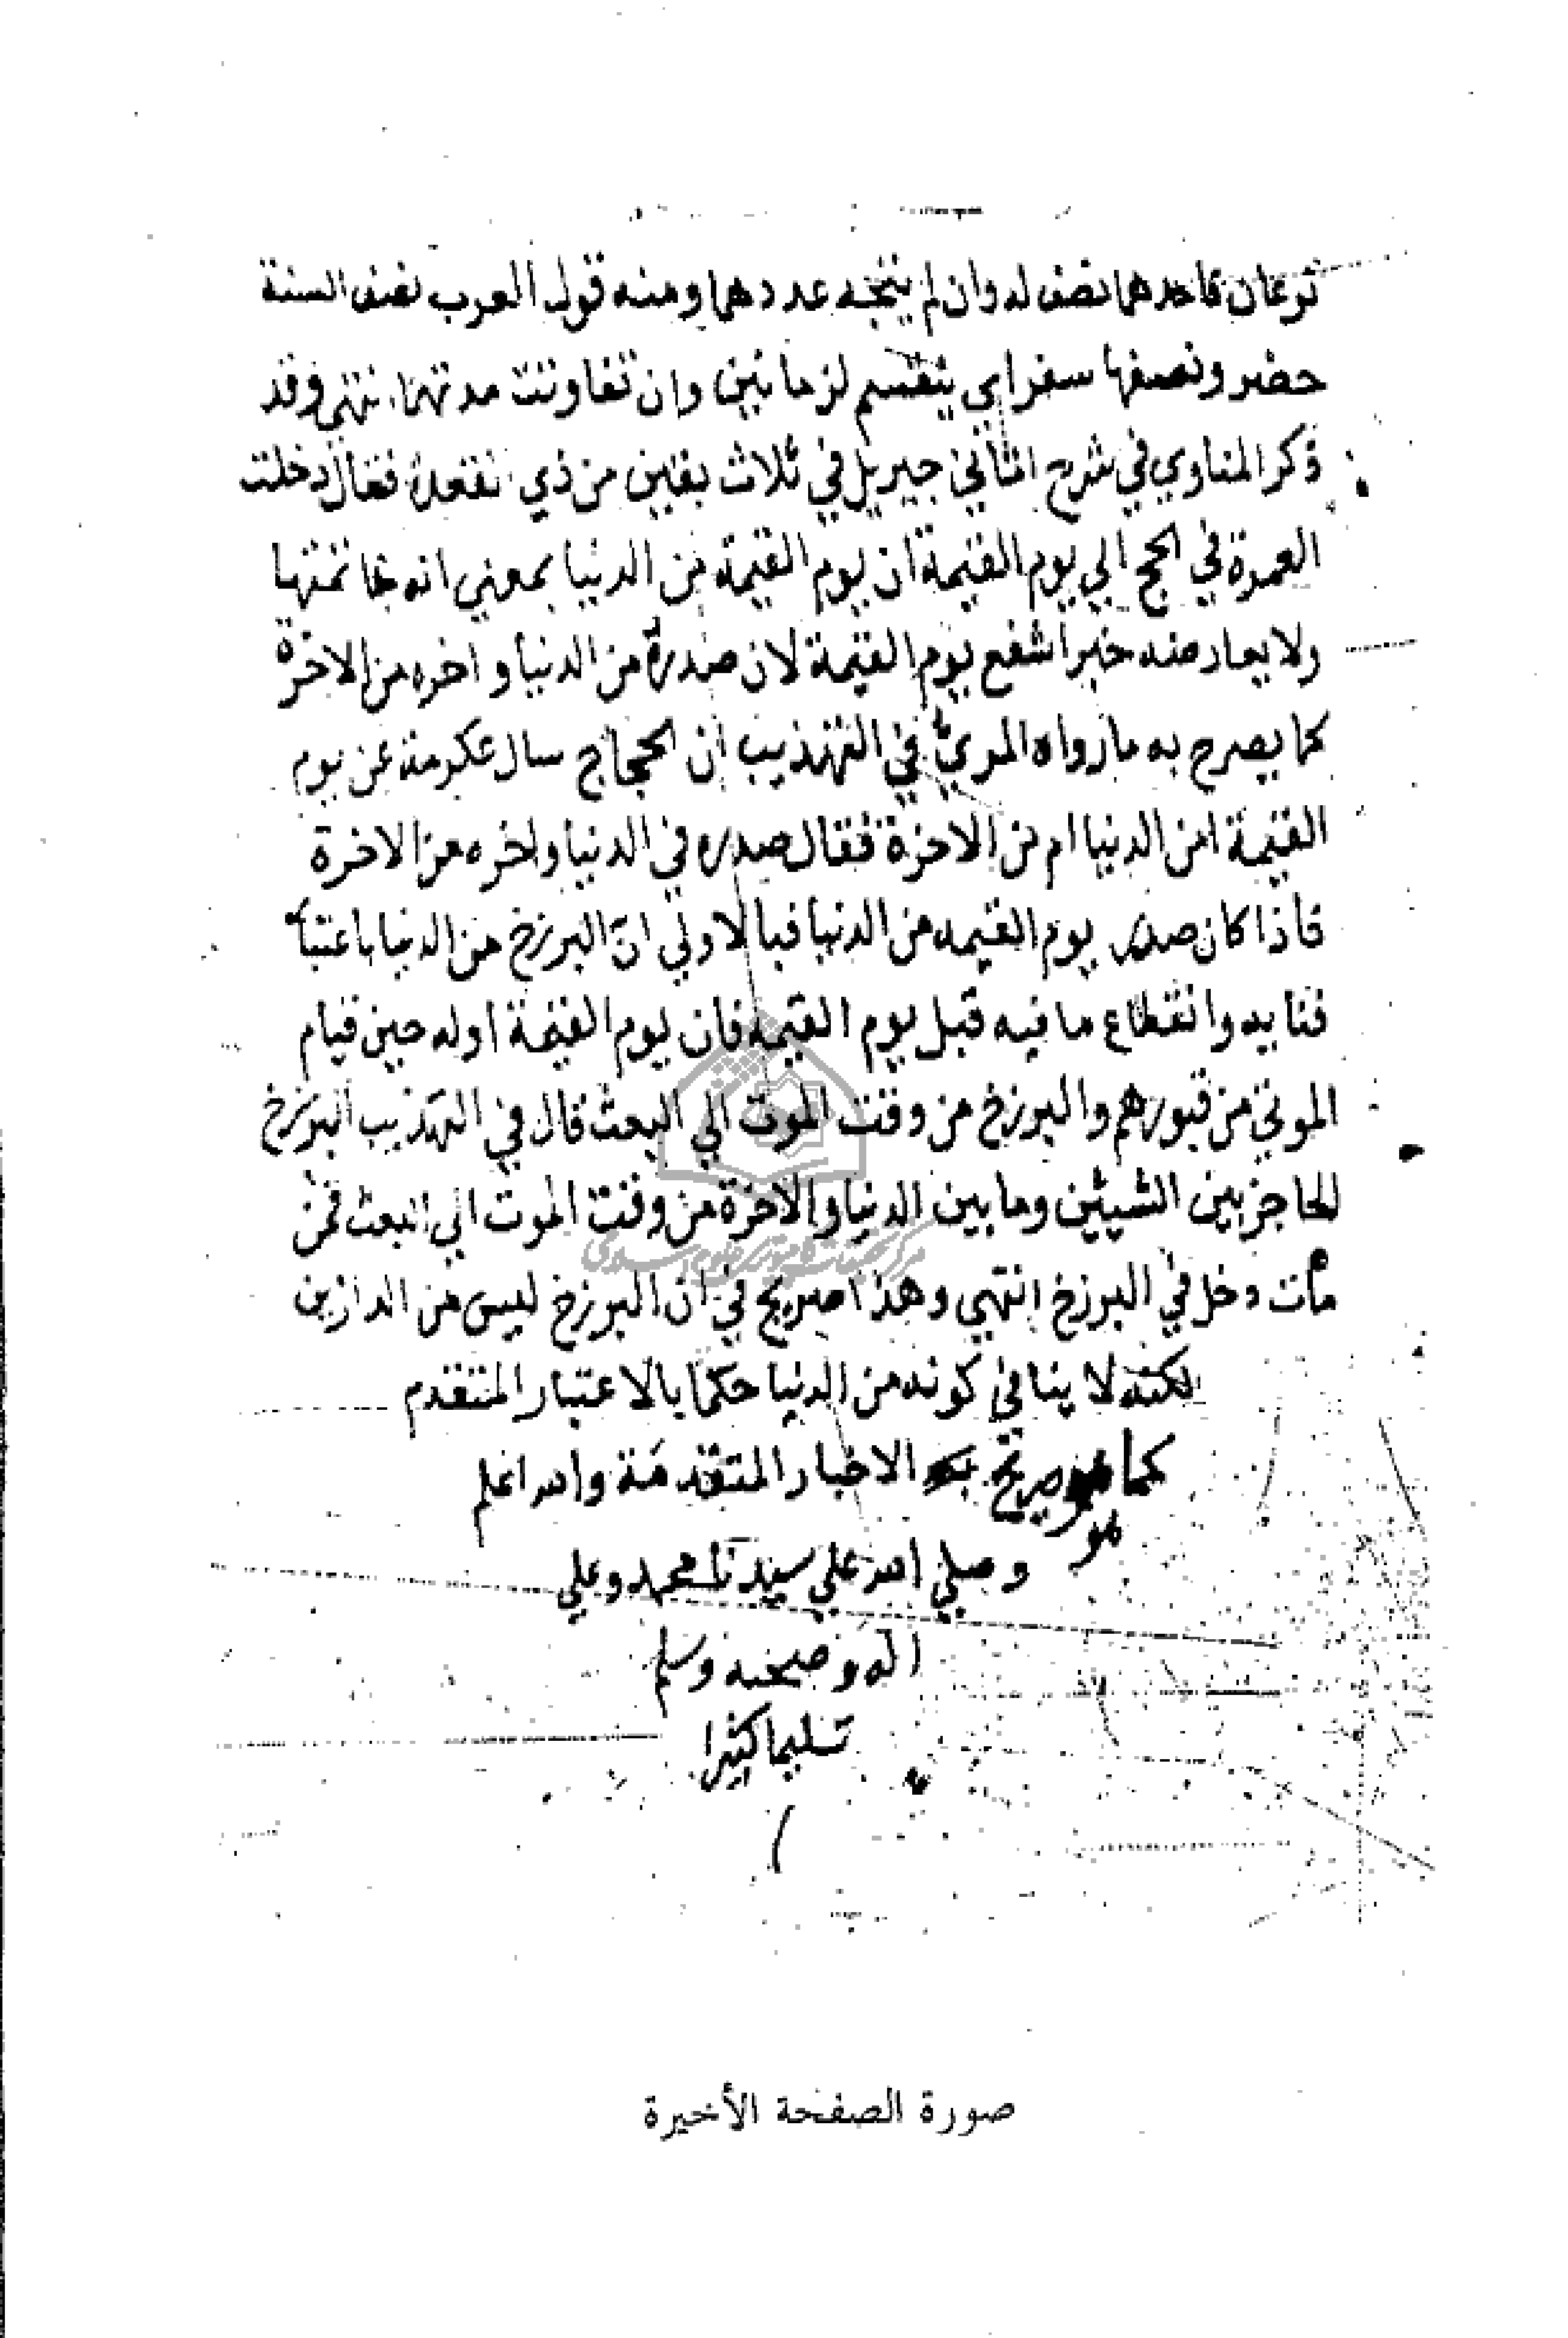 نوعان فاحدهما نصف له وان لم يتجه عددهما ومنه قول العرب نصف السنة
حضر ونصفها سفر اي ينقسم لزمانين وان تفاوتت مدتهما انتهي وقد
ذكر المناوي في شرح اتاني جبريل في ثلاث بقين من ذي القعدة فقال دخلت
العمرة في الحج الي يوم القيمة ان يوم القيمة من الدنيا بمعني انه خاتمتها
ولا يعارضه خبر اشفع يوم القيمة لان صدره من الدنيا واخره من الاخرة
كما يصرح به ما رواه المزي في التهذيب ان الحجاج سال عكرمة عن يوم
القيمة امن الدنيا ام من الاخرة فقال صدره في الدنيا واخره من الاخرة
فاذا كان صدر يوم القيمه من الدنيا فبالاولي ان البرزخ من الدنيا باعتبا
فنايه وانقطاع ما فيه قبل يوم القيمه فان يوم القيمة اوله حين قيام
الموتي من قبورهم والبرزخ من وقت الموت الي البعث قال في التهذيب البرزخ
الحاجز بين الشيئين وما بين الدنيا والاخرة من وقت الموت الي البعث فمن
مات دخل في البرزخ انتهي وهذا صريح في ان البرزخ ليس من الدارين
لكنه لا ينافي كونه من الدنيا حكما بالاعتبار المتقدم
كما صريح الاخبار المتقدمة والله اعلم
هو
وصلي الله علي سيدنا محمد وعلي
اله وصحبه وسلم
تسليما كثيرا
صورة الصفحة الأخيرة